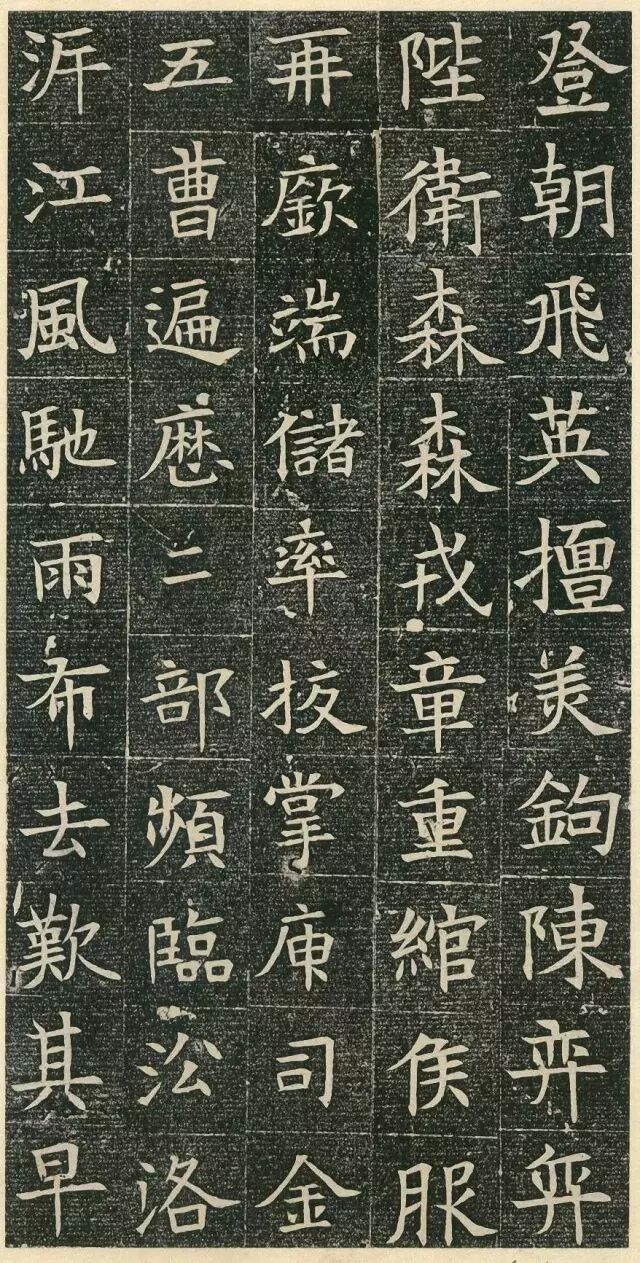 登朝飛英擅美鉤陳弈弈
陛衛森森戎章重綰侯服
再廞端儲率抜掌庾司金
五曹遍歷二部頻臨㳂洛
泝江風馳雨布去歎其早